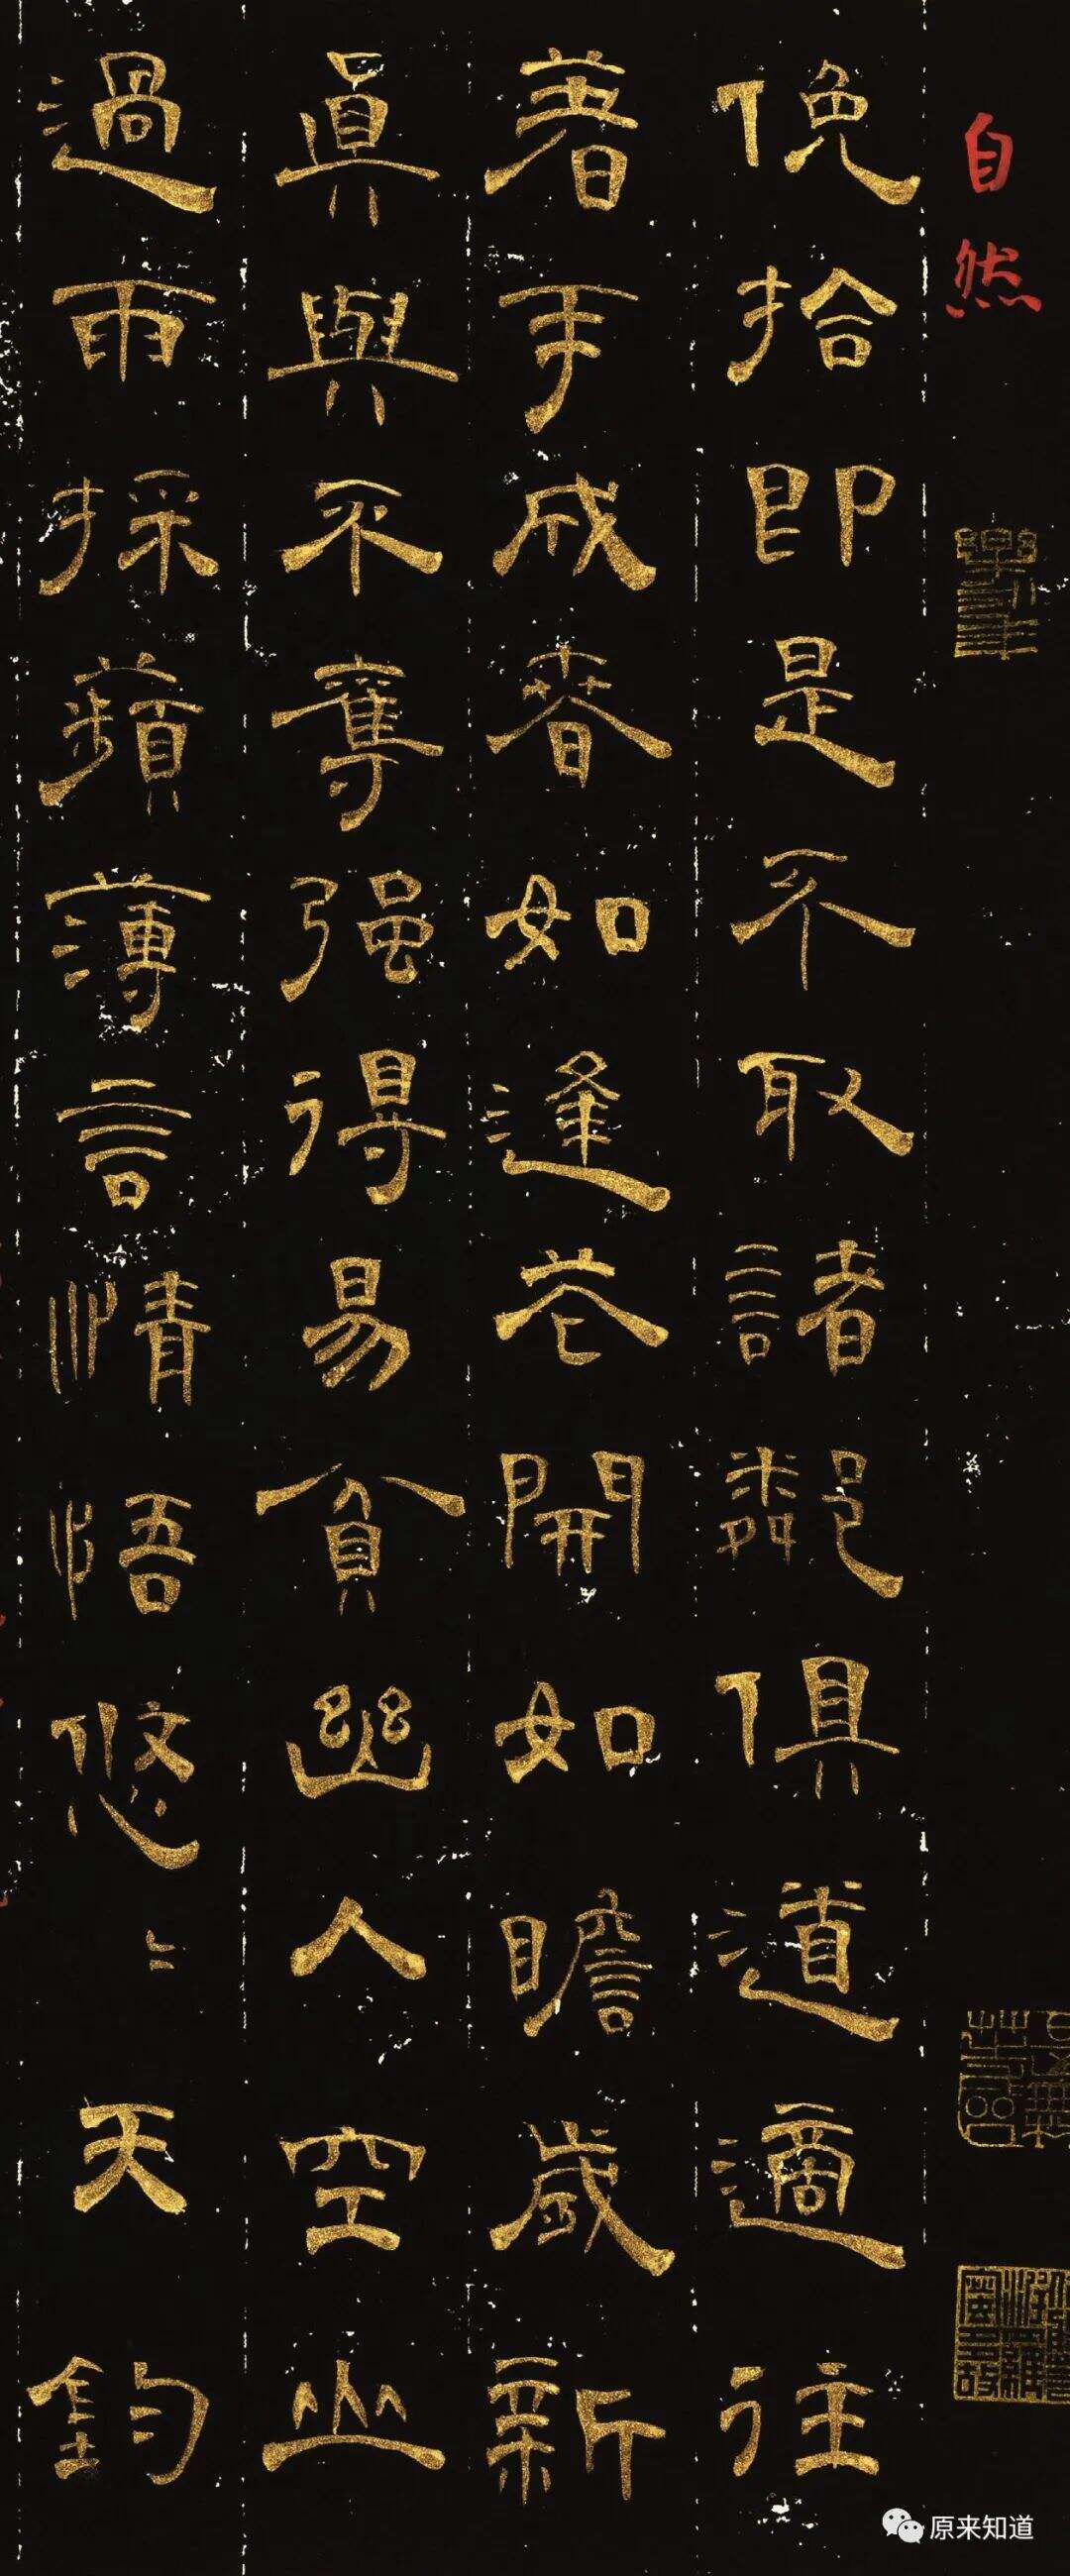 自然
俛拾即是不取諸鄰俱道適往
著手成春如逢花開如瞻歲新
眞與不奪强得易貧幽人空山
過雨採蘋薄言情悟悠〻天鈞
原来知道